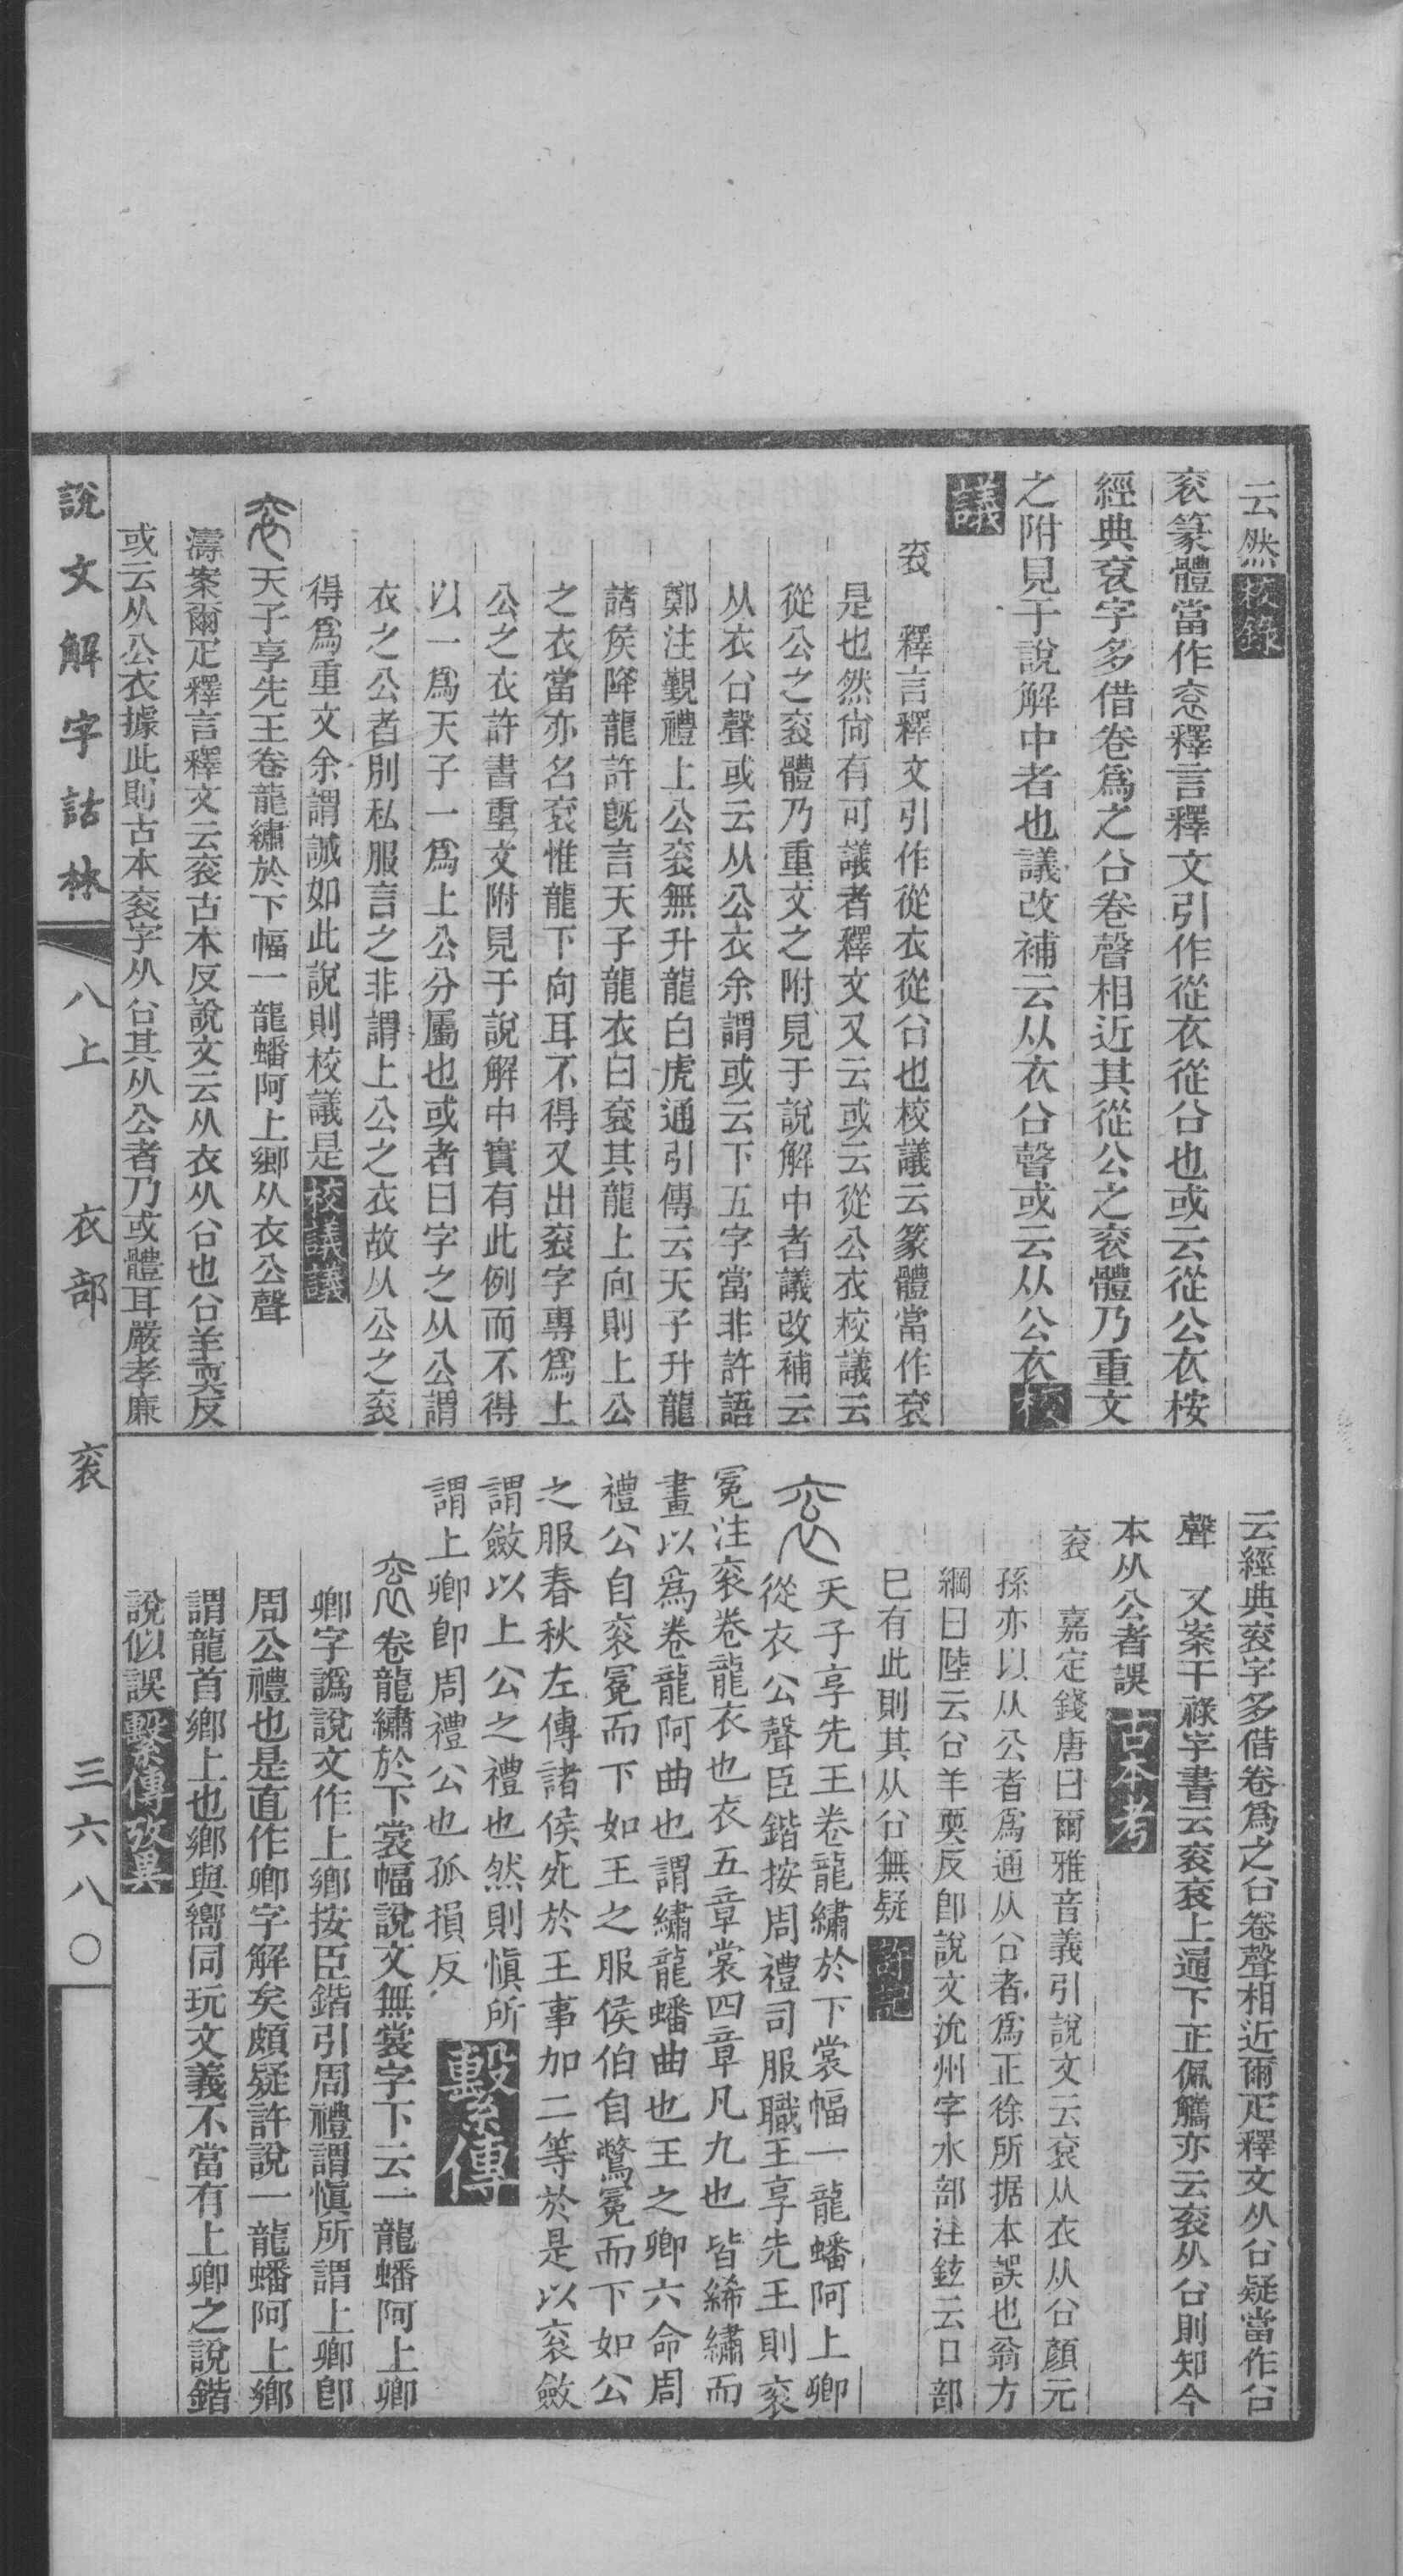 云然校錄
袞篆體當作𧘂釋言釋文引作從衣從㕣也或云從公衣桉
經典袞字多借卷爲之㕣卷聲相近其從公之衮體乃重文
之附見于說解中者也議改補云从衣㕣聲或云从公衣校
議
袞　釋言釋文引作從衣從㕣也校議云篆體當作袞
是也然尙有可議者釋文又云或云從公衣校議云
從公之衮體乃重文之附見于說解中者議改補云
从衣㕣聲或云从公衣余謂或云下五字當非許語
鄭注覲禮上公衮無升龍白虎通引傳云天子升龍
諸侯降龍許旣言天子龍衣曰袞其龍上向則上公
之衣當亦名袞惟龍下向耳不得又出衮字專爲上
公之衣許書重文附見于說解中實有此例而不得
以一爲天子一爲上公分屬也或者曰字之从公謂
衣之公者別私服言之非謂上公之衣故从公之衮
得爲重文余謂誠如此說則校議是校議議
天子享先王卷龍繡於下幅一龍蟠阿上鄕从衣公聲
濤案爾疋釋言釋文云衮古本反說文云从衣从㕣也㕣羊耎反
或云从公衣據此則古本袞字从㕣其从公者乃或體耳嚴孝廉
云經典袞字多借卷爲之㕣卷聲相近爾疋釋文从㕣疑當作㕣
聲　又案干祿字書云衮袞上通下正佩觿亦云袞从㕣則知今
本从公者誤古本考
袞　嘉定錢唐曰爾雅音義引說文云袞从衣从㕣顏元
孫亦以从公者爲通从㕣者爲正徐所据本誤也翁方
綱曰陸云㕣羊耎反卽說文沇州字水部注鉉云口部
已有此則其从㕣無疑許記
天子享先王卷龍繡於下裳幅一龍蟠阿上卿
從衣公聲臣鍇按周禮司服職王享先王則衮
冕注衮卷龍衣也衣五章裳四章凡九也皆絺繡而
畫以爲卷龍阿曲也謂繡龍蟠曲也王之卿六命周
禮公自衮冕而下如王之服侯伯自鷩冕而下如公
之服春秋左傳諸侯死於王事加二等於是以衮斂
謂斂以上公之禮也然則愼所
謂上卿卽周禮公也孤損反　繫傳
卷龍繡於下裳幅說文無裳字下云一龍蟠阿上卿
卿字譌說文作上鄕按臣鍇引周禮謂愼所謂上卿卽
周公禮也是直作卿字解矣頗疑許說一龍蟠阿上鄕
謂龍首鄕上也鄕與嚮同玩文義不當有上卿之說鍇
說似誤繫傳攷異
說文解字詁林　八上　衣部　衮　三六八〇